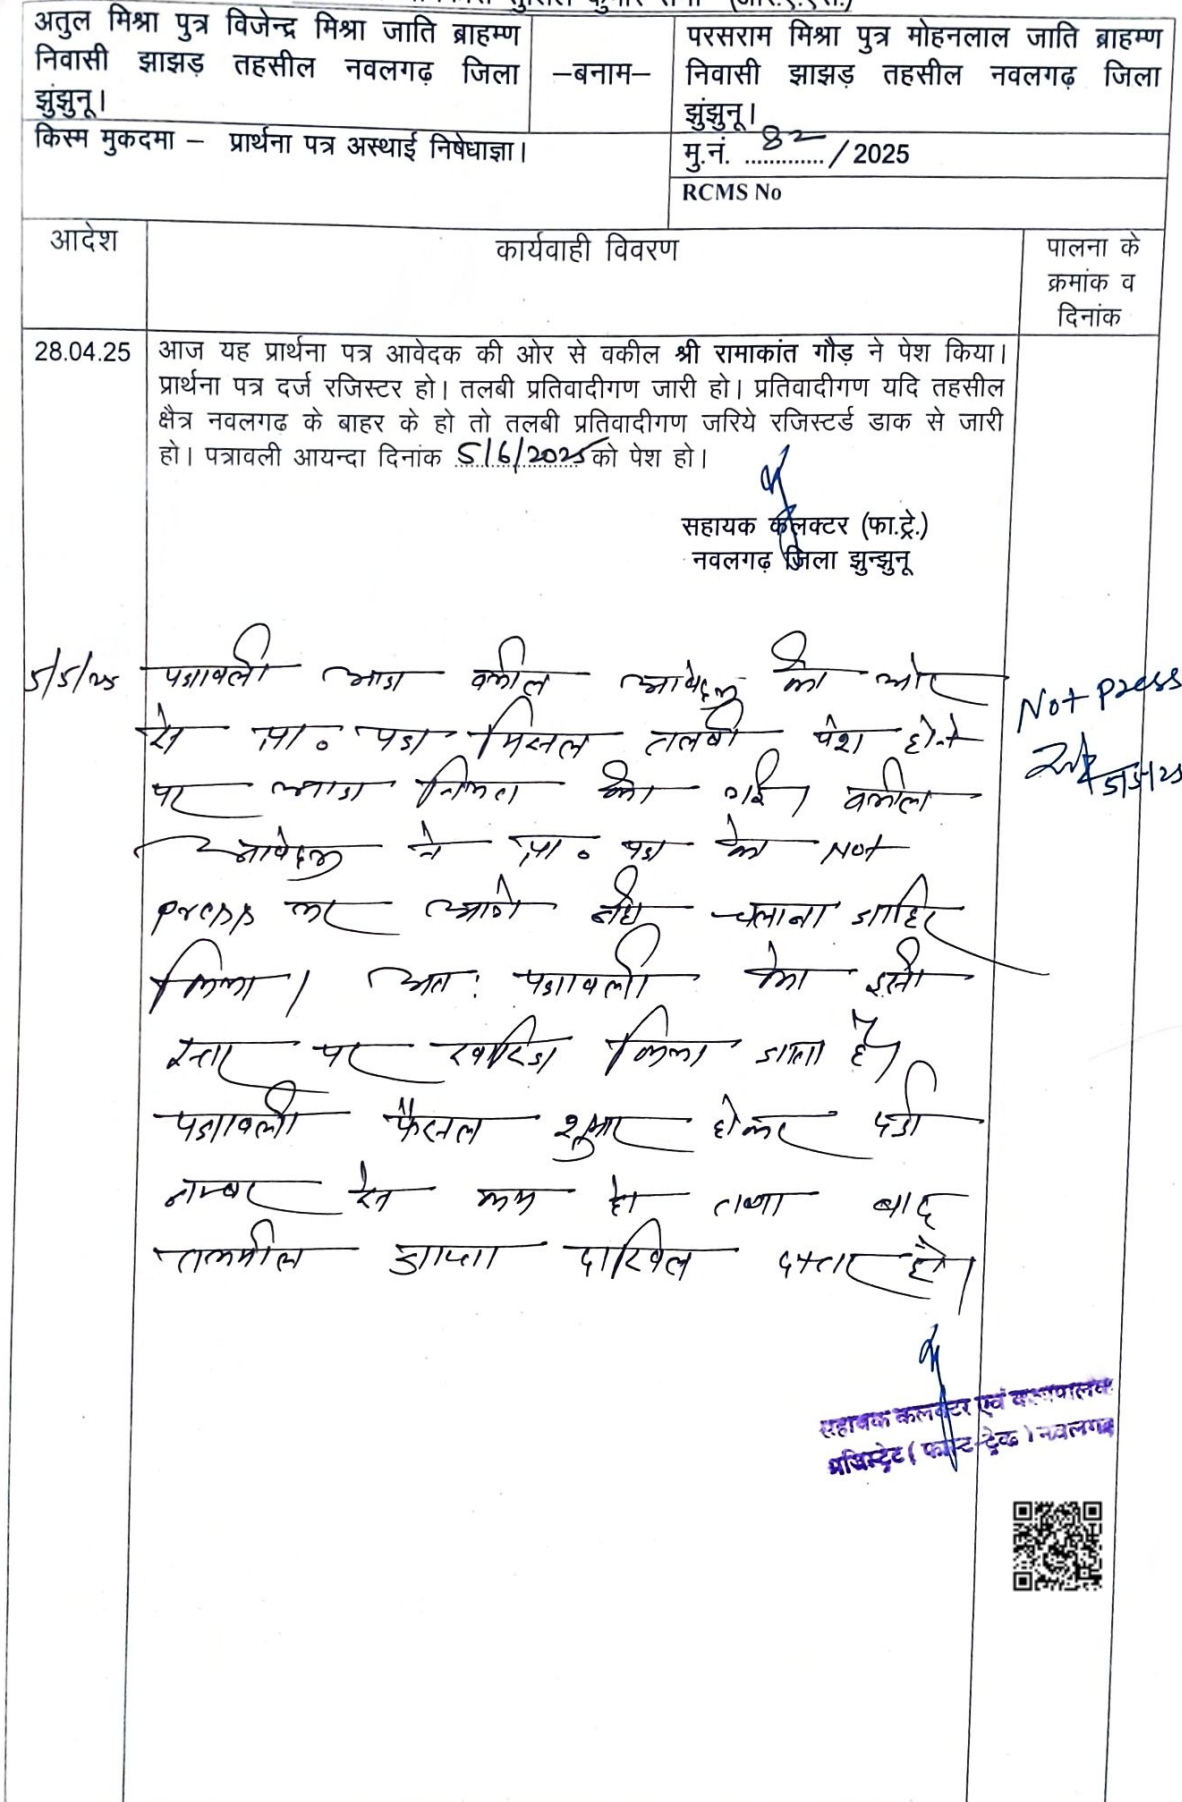 अतुल मिश्रा पुत्र विजेन्द्र मिश्रा जाति ब्राहम्ण
निवासी झाझड़ तहसील नवलगढ़ जिला
झुंझुनू।
–बनाम–
परसराम मिश्रा पुत्र मोहनलाल जाति ब्राहम्ण
निवासी झाझड़ तहसील नवलगढ़ जिला
झुंझुनू।
किस्म मुकदमा – प्रार्थना पत्र अस्थाई निषेधाज्ञा।
मु.नं. 82 / 2025
RCMS No
आदेश
कार्यवाही विवरण
पालना के
क्रमांक व
दिनांक
28.04.25
आज यह प्रार्थना पत्र आवेदक की ओर से वकील श्री रामाकांत गौड़ ने पेश किया।
प्रार्थना पत्र दर्ज रजिस्टर हो। तलबी प्रतिवादीगण जारी हो। प्रतिवादीगण यदि तहसील
क्षैत्र नवलगढ के बाहर के हो तो तलबी प्रतिवादीगण जरिये रजिस्टर्ड डाक से जारी
हो। पत्रावली आयन्दा दिनांक 5/6/2025 को पेश हो।
सहायक कलक्टर (फा.ट्रे.)
नवलगढ़ जिला झुन्झुनू
5/5/25 पत्रावली आज वकील आवेदक की ओर
से प्रा० पत्र मिसल तलबी पेश होने
पर आज नियत की गई। वकील
आवेदक ने प्रा० पत्र को Not
press कर आगे नहीं चलाना जाहिर
किया। अत: पत्रावली को इसी
स्तर पर खारिज किया जाता है।
पत्रावली फैसल शुमार होकर दर्ज
नम्बर से कम हो तथा बाद
तकमील जाप्ता दाखिल दफ्तर हो।
Not press
5/5/25
सहायक कलक्टर एवं कार्यपालक
मजिस्ट्रेट (फास्ट-ट्रेक) नवलगढ